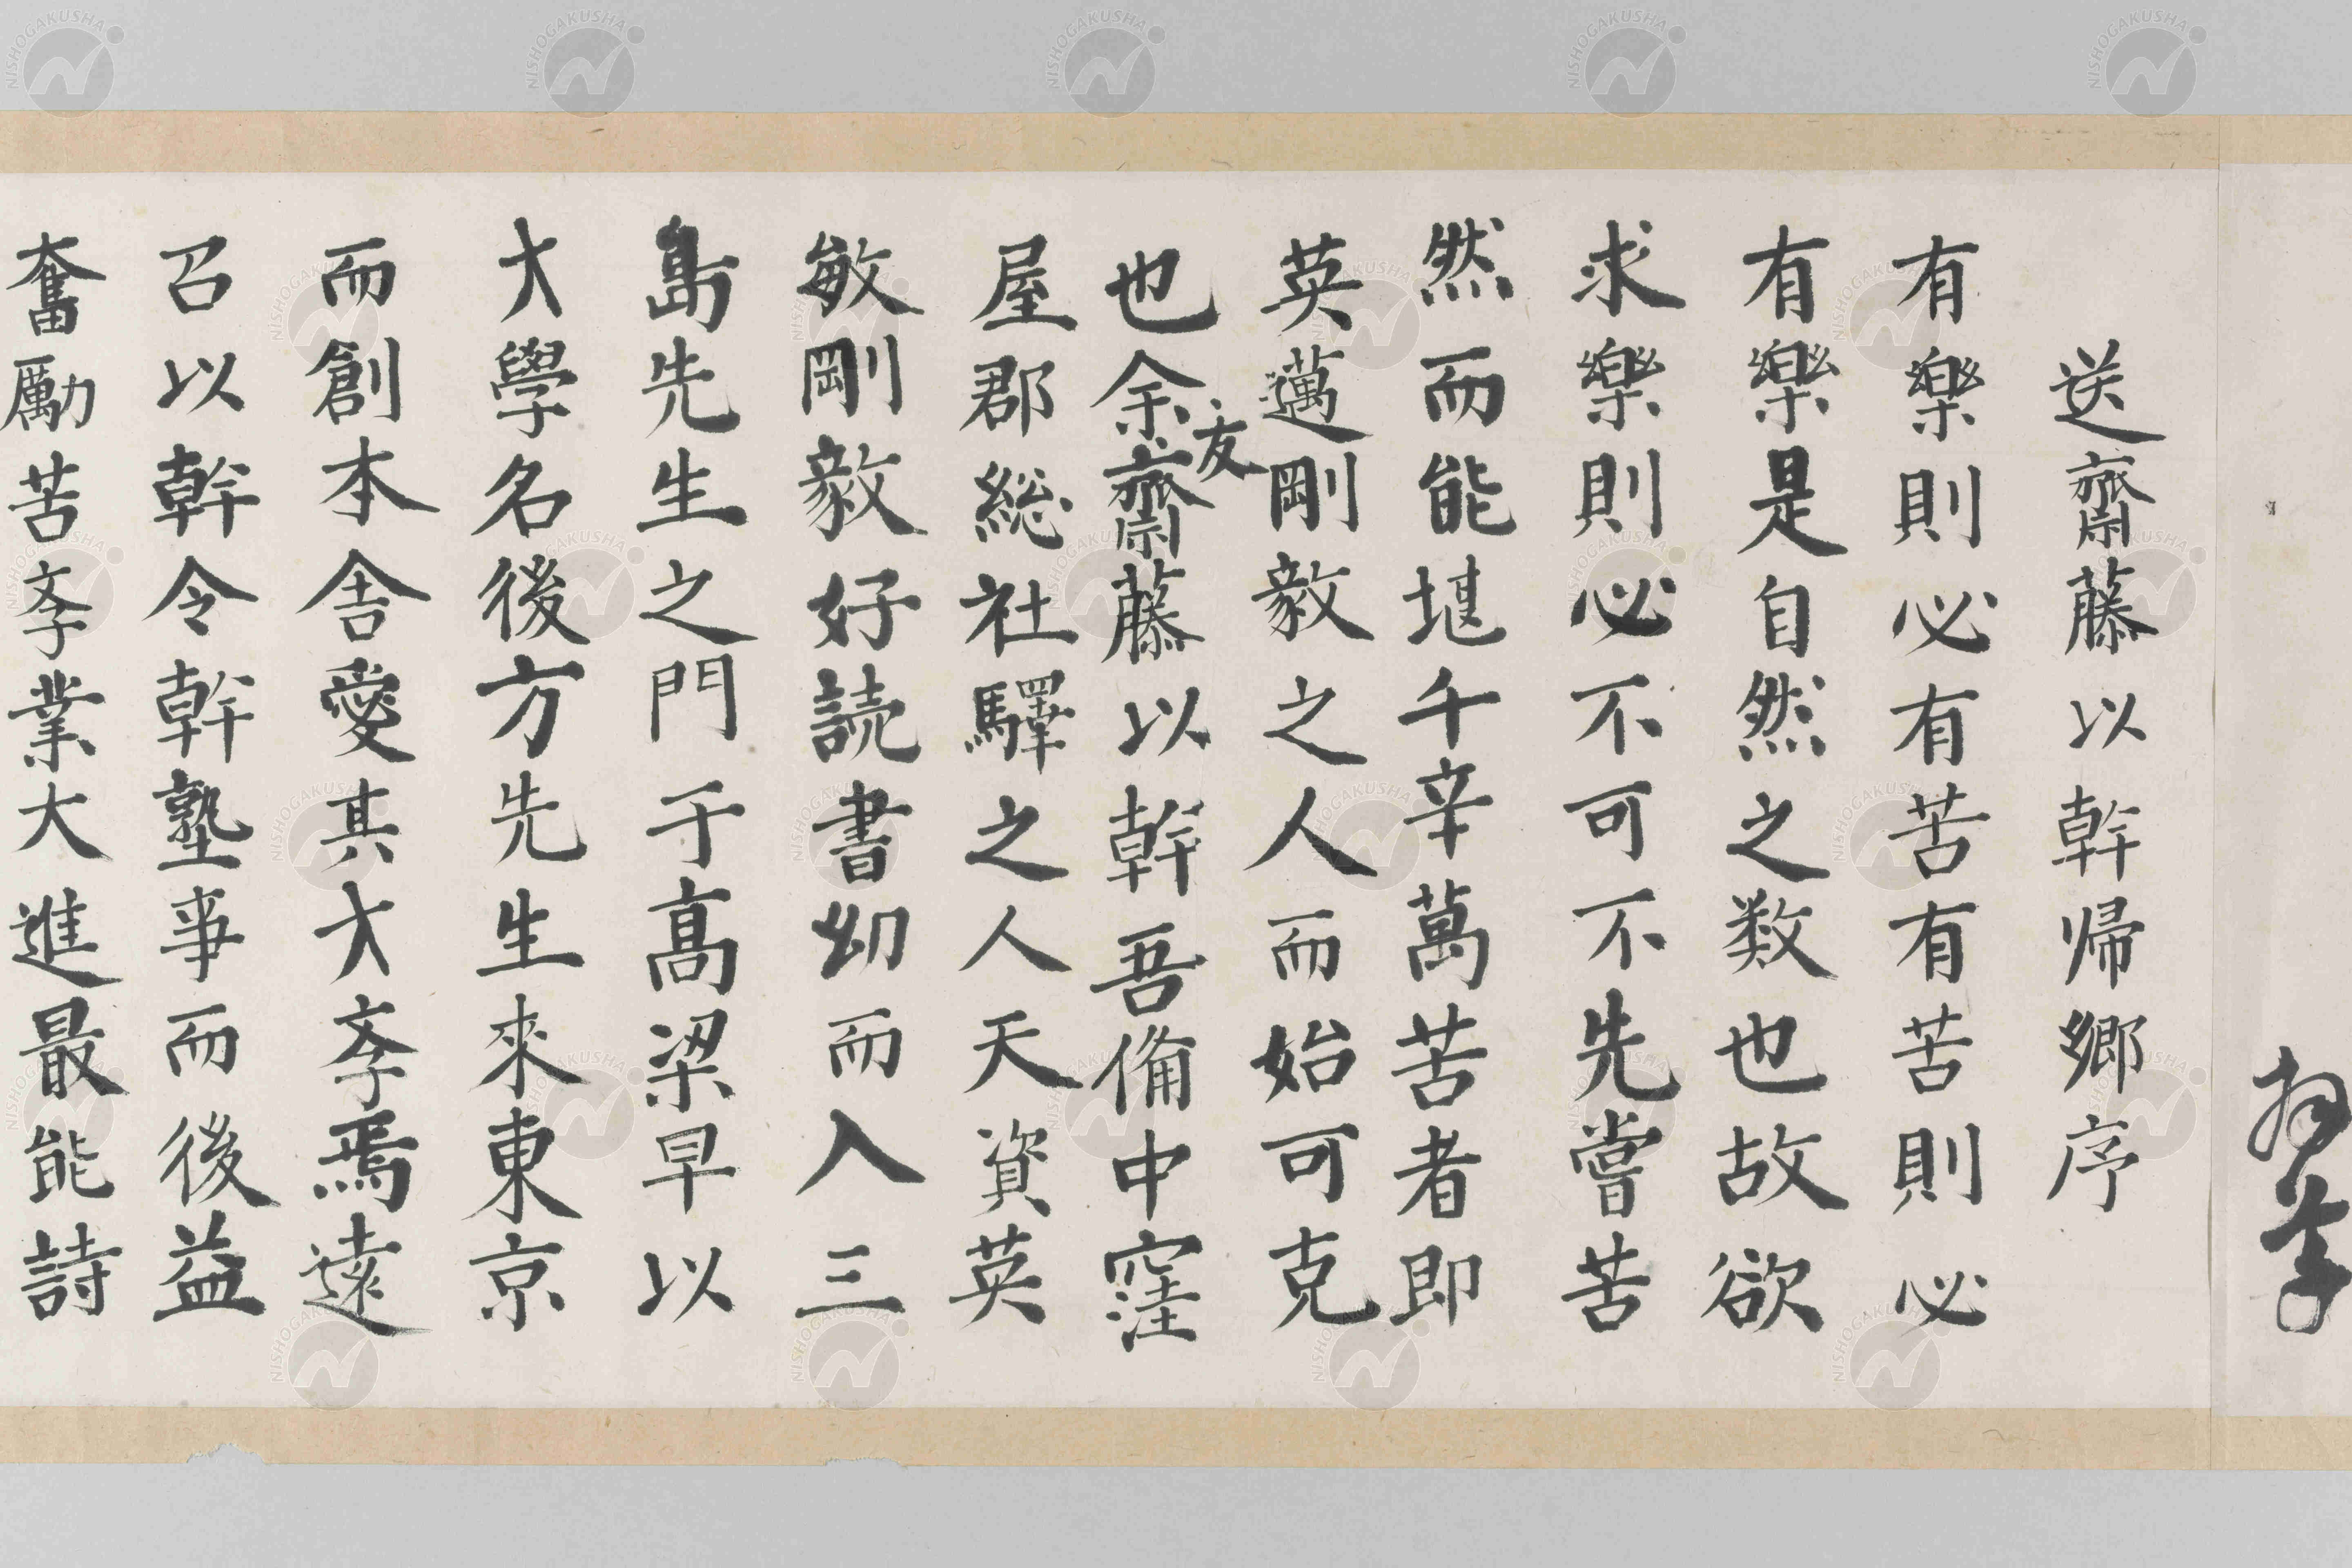 送齋藤以幹帰郷序
有樂則必有苦有苦則必
有樂是自然之数也故欲
求樂則必不可不先嘗苦
然而能堪千辛萬苦者即
英邁剛毅之人而始可克
也余友齋藤以幹吾備中窪
屋郡総社驛之人天資英
敏剛毅好読書幼而入三
島先生之門于高梁早以
才學名後方先生來東京
而創本舎愛其才斈焉遠
召以幹令幹塾事而後益
奮勵苦斈業大進最能詩
NISHOGAKUSHA